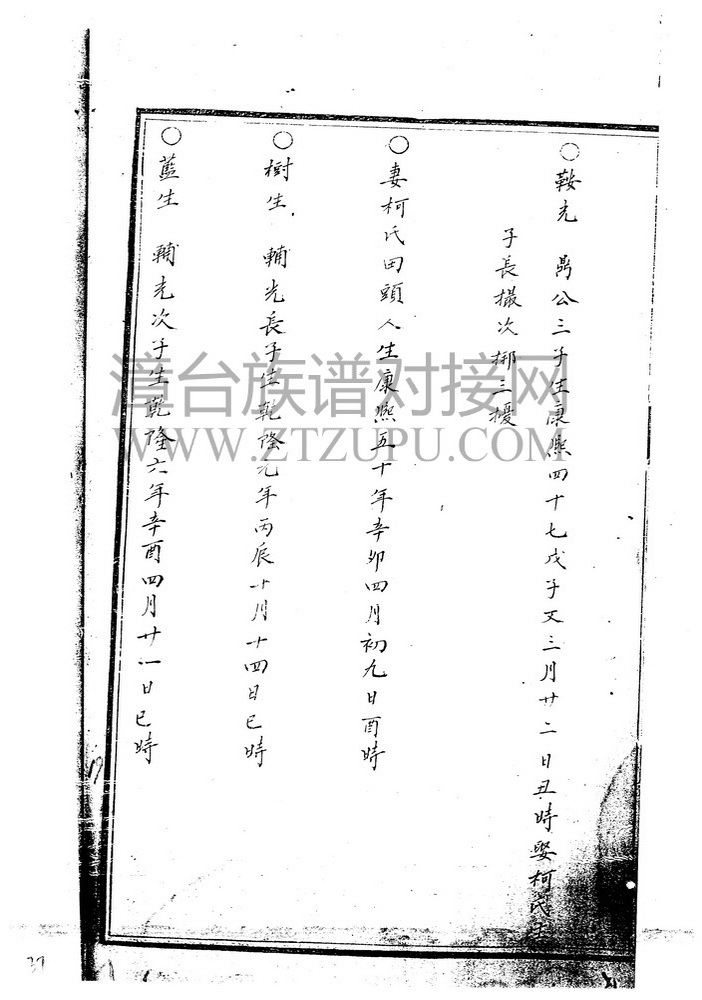 ○鞍光 禼公三子生康熙四十七戊子又三月廿二日丑時娶柯氏生
子長撮次挷三擾
○妻柯氏田頭人生康熙五十年辛卯四月初九日酉時
○樹生 輔光長子生乾隆元年丙辰十月十四日巳時
○藍生 輔光次子生乾隆六年辛酉四月廿一日巳時
漳台族谱对接网
WWW.ZTZUPU.COM
37